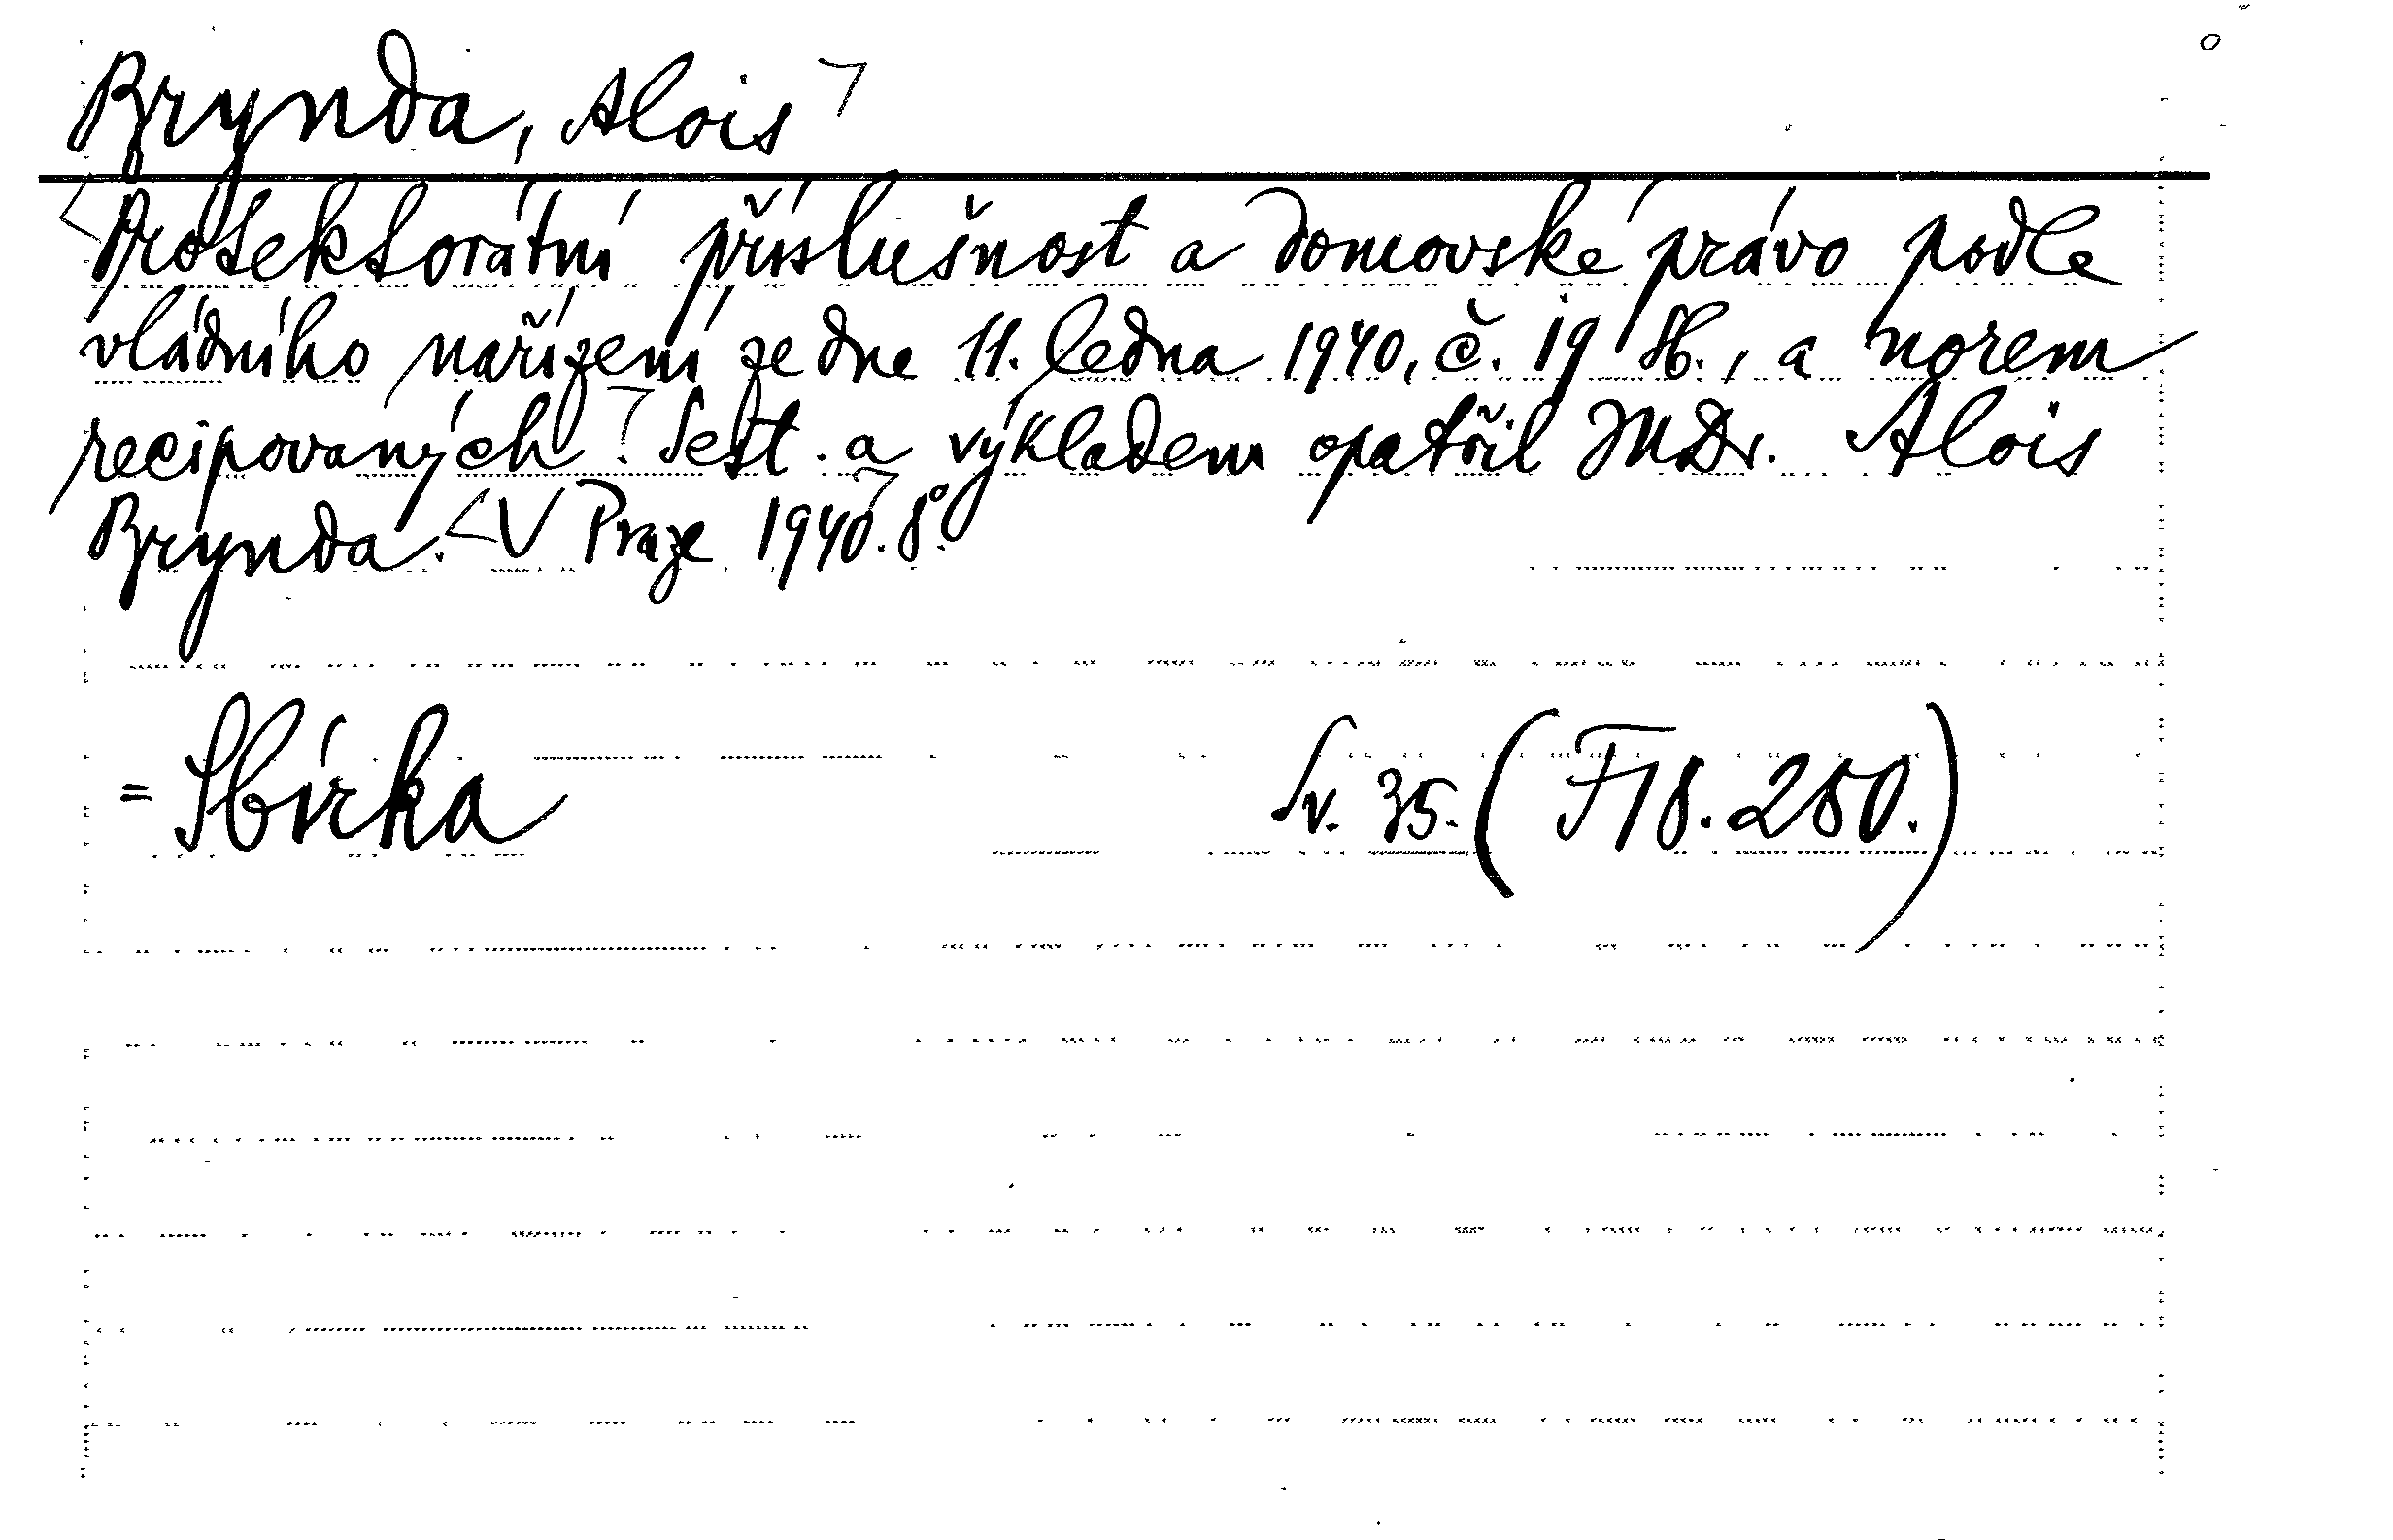 Brynda, Alois
Protektorátní příslušnost a domovské právo podle
vládního nařízení ze dne 11. ledna 1940, č. 19 Sb., a norem
recipovaných. Sest. a výkladem opatřil JUDr. Alois
Brynda. V Praze 1940. 8°.
= Sbírka Sv. 35. (F 18. 250.)